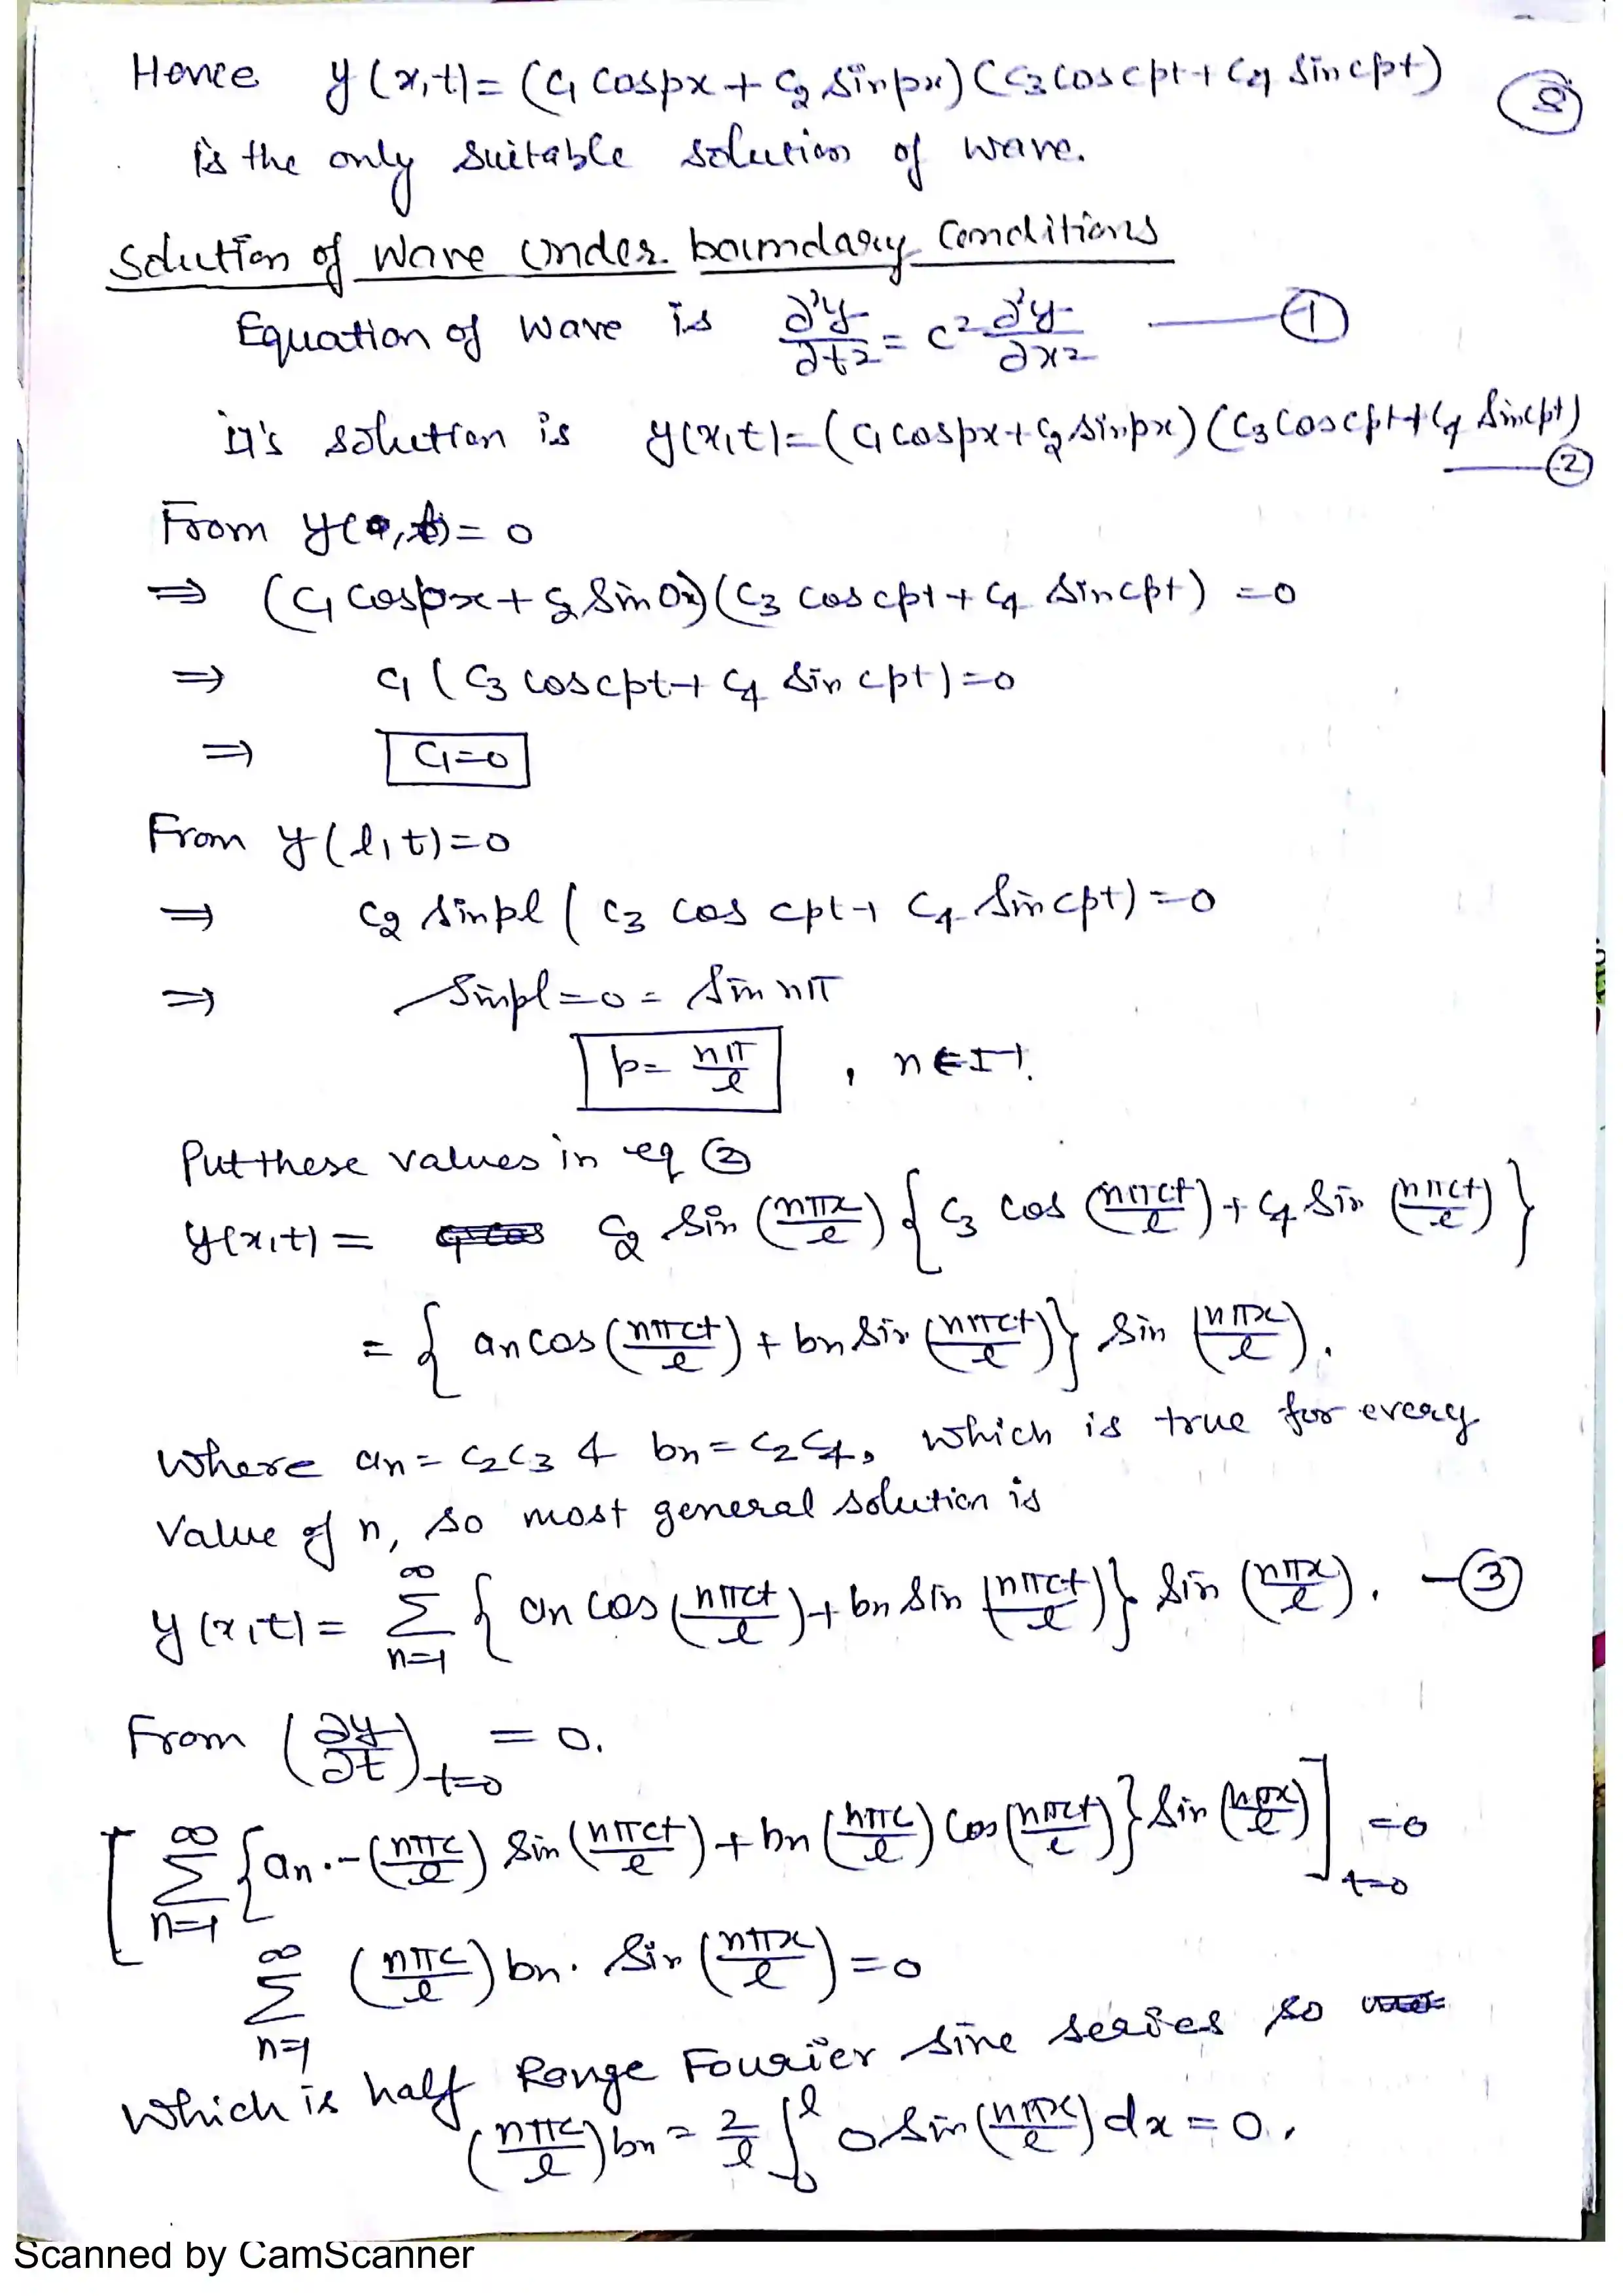 Hence y(x,t)=(c₁ cospx + c₂ sinpx)(c₃ cos cpt + c₄ sin cpt) ⑧
is the only suitable solution of wave.
Solution of Wave Under boundary Conditions
Equation of wave is ∂²y/∂t² = c² ∂²y/∂x² —— ①
it's solution is y(x,t)=(c₁ cospx + c₂ sinpx)(c₃ cos cpt + c₄ sin cpt)
—— ②
From y(0,t)=0
⇒ (c₁ cos0x + c₂ sin0x)(c₃ cos cpt + c₄ sin cpt) = 0
⇒ c₁ (c₃ cos cpt + c₄ sin cpt)=0
⇒ c₁=0
From y(l,t)=0
⇒ c₂ sinpl (c₃ cos cpt + c₄ sin cpt)=0
⇒ sinpl=0 = sin nπ
p = nπ/l , n∈I⁺.
Put these values in eq ②
y(x,t) = c₂ sin (nπx/l) { c₃ cos (nπct/l) + c₄ sin (nπct/l) }
= { an cos (nπct/l) + bn sin (nπct/l)} sin (nπx/l).
where an = c₂c₃ & bn = c₂c₄, which is true for every
value of n, so most general solution is
y(x,t) = ∞Σn=1 { an cos (nπct/l) + bn sin (nπct/l)} sin (nπx/l). —③
From (∂y/∂t)t=0 = 0.
[ ∞Σn=1 {an.-(nπc/l) sin (nπct/l) + bn (nπc/l) cos (nπct/l)} sin (nπx/l) ]t=0 =0
∞Σn=1 (nπc/l) bn. sin (nπx/l) =0
which is half Range Fourier sine series so
(nπc/l) bn = 2/l ∫₀ˡ 0 sin (nπx/l) dx = 0.
Scanned by CamScanner